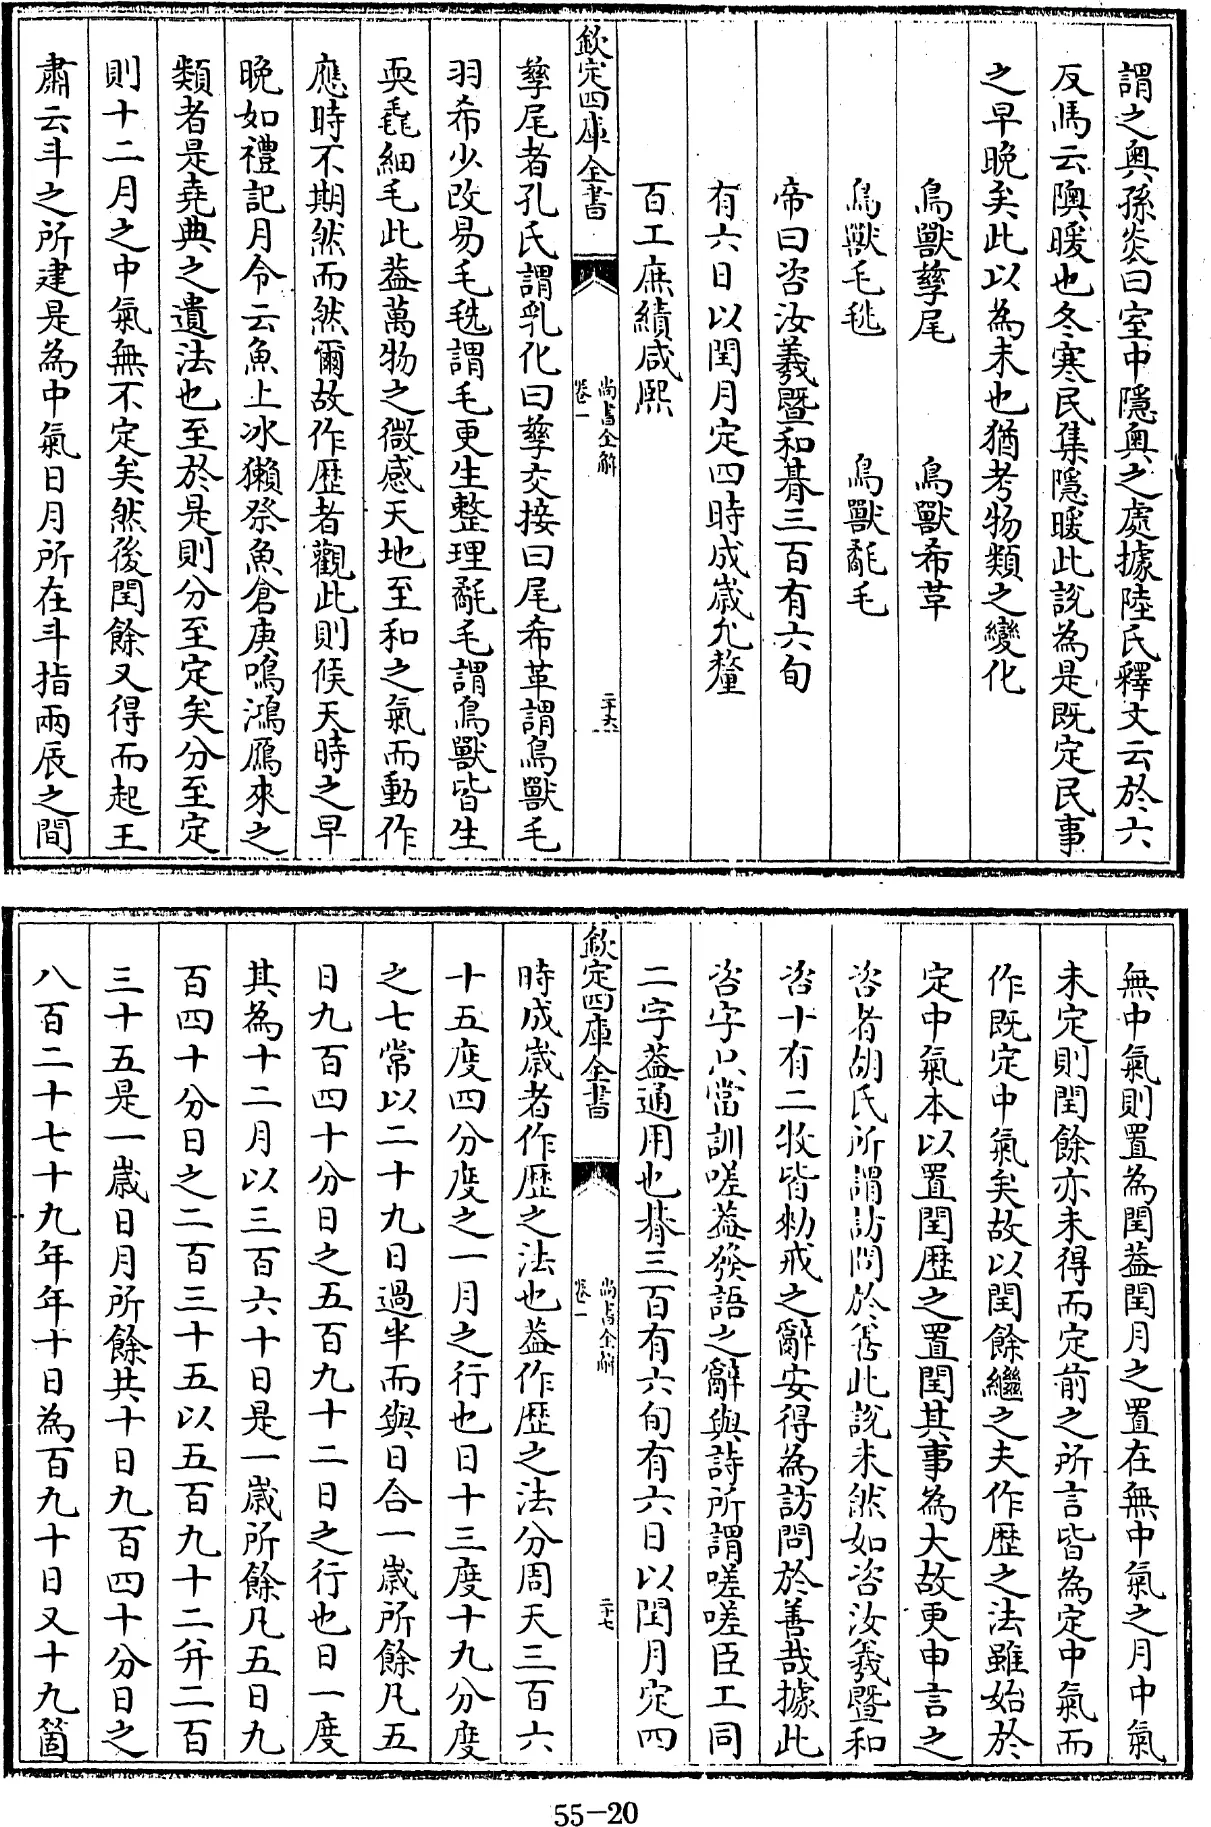 謂之奥孫炎曰室中隱奥之處據陸氏釋文云於六
反馬云隩暖也冬寒民集隱暖此說為是既定民事
之早晚矣此以為未也猶考物類之變化
鳥獸孳尾　鳥獸希革
鳥獸毛毨　鳥獸氄毛
帝曰咨汝羲暨和朞三百有六旬
有六日以閏月定四時成歲允釐
百工庶績咸熙
欽定四庫全書　尚書全解　卷一　二十六
孳尾者孔氏謂乳化曰孳交接曰尾希革謂鳥獸毛
羽希少改易毛毨謂毛更生整理氄毛謂鳥獸皆生
耎毳細毛此葢萬物之微感天地至和之氣而動作
應時不期然而然爾故作歴者觀此則候天時之早
晚如禮記月令云魚上冰獺祭魚倉庚鳴鴻鴈來之
類者是堯典之遺法也至於是則分至定矣分至定
則十二月之中氣無不定矣然後閏餘又得而起王
肅云斗之所建是為中氣日月所在斗指兩辰之間
無中氣則置為閏葢閏月之置在無中氣之月中氣
未定則閏餘亦未得而定前之所言皆為定中氣而
作既定中氣矣故以閏餘繼之夫作歴之法雖始於
定中氣本以置閏歴之置閏其事為大故更申言之
咨者胡氏所謂訪問於善此說未然如咨汝羲暨和
咨十有二牧皆勑戒之辭安得為訪問於善哉據此
咨字只當訓嗟葢發語之辭與詩所謂嗟嗟臣工同
二字葢通用也朞三百有六旬有六日以閏月定四
欽定四庫全書　尚書全解　卷一　二十七
時成歲者作歴之法也葢作歴之法分周天三百六
十五度四分度之一月之行也日十三度十九分度
之七常以二十九日過半而與日合一歲所餘凡五
日九百四十分日之五百九十二日之行也日一度
其為十二月以三百六十日是一歲所餘凡五日九
百四十分日之二百三十五以五百九十二并二百
三十五是一歲日月所餘共十日九百四十分日之
八百二十七十九年年十日為百九十日又十九箇
55-20